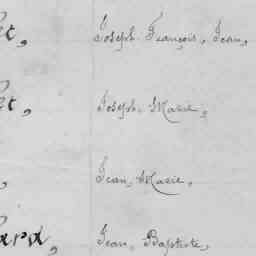 et, Joseph François, Jean,
et, Joseph, Marie,
, Jean, Marie,
ard, Jean, Baptiste,